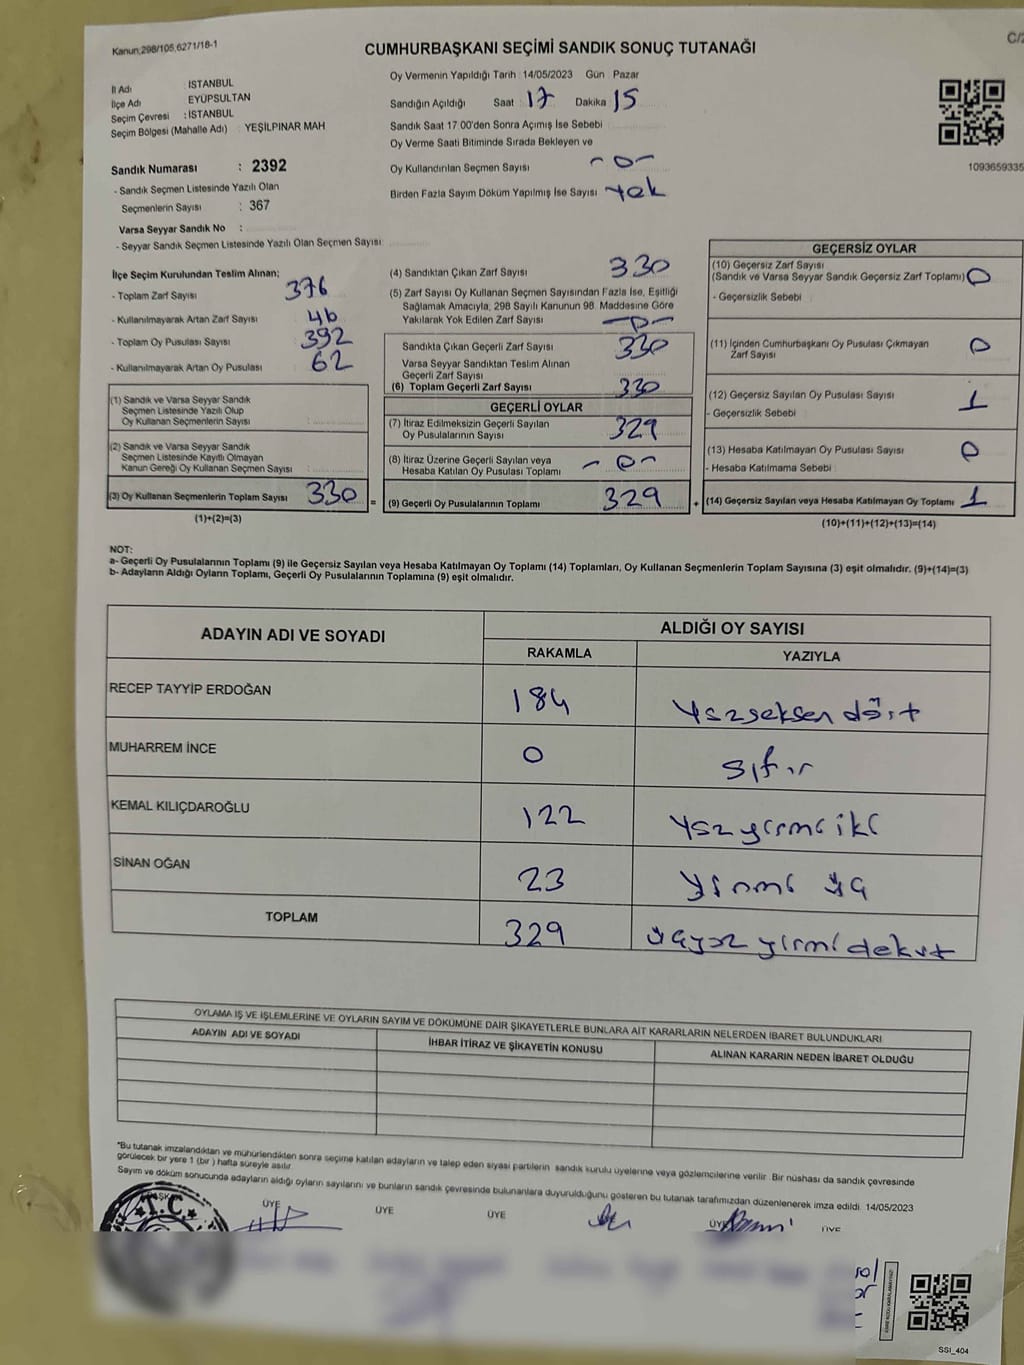 Kanun:298/105,6271/18-1
CUMHURBAŞKANI SEÇİMİ SANDIK SONUÇ TUTANAĞI
İl Adı : İSTANBUL
İlçe Adı EYÜPSULTAN
Seçim Çevresi : İSTANBUL
Seçim Bölgesi (Mahalle Adı) YEŞİLPINAR MAH
Oy Vermenin Yapıldığı Tarih 14/05/2023 Gün Pazar
Sandığın Açıldığı Saat 17 Dakika 15
Sandık Saat 17:00'den Sonra Açımış İse Sebebi
Oy Verme Saati Bitiminde Sırada Bekleyen ve
Oy Kullandırılan Seçmen Sayısı -0-
Birden Fazla Sayım Döküm Yapılmış İse Sayısı yok
1093659335
Sandık Numarası : 2392
- Sandık Seçmen Listesinde Yazılı Olan
Seçmenlerin Sayısı : 367
Varsa Seyyar Sandık No :
- Seyyar Sandık Seçmen Listesinde Yazılı Olan Seçmen Sayısı
İlçe Seçim Kurulundan Teslim Alınan;
- Toplam Zarf Sayısı 376
- Kullanılmayarak Artan Zarf Sayısı 46
- Toplam Oy Pusulası Sayısı 392
- Kullanılmayarak Artan Oy Pusulası 62
(1) Sandık ve Varsa Seyyar Sandık
Seçmen Listesinde Yazılı Olup
Oy Kullanan Seçmenlerin Sayısı :
(2) Sandık ve Varsa Seyyar Sandık
Seçmen Listesinde Kayıtlı Olmayan
Kanun Gereği Oy Kullanan Seçmen Sayısı :
(3) Oy Kullanan Seçmenlerin Toplam Sayısı 330 =
(1)+(2)=(3)
(4) Sandıktan Çıkan Zarf Sayısı 330
(5) Zarf Sayısı Oy Kullanan Seçmen Sayısından Fazla İse, Eşitliği
Sağlamak Amacıyla, 298 Sayılı Kanunun 98. Maddesine Göre
Yakılarak Yok Edilen Zarf Sayısı -0-
Sandıkta Çıkan Geçerli Zarf Sayısı 330
Varsa Seyyar Sandıktan Teslim Alınan
Geçerli Zarf Sayısı
(6) Toplam Geçerli Zarf Sayısı 330
GEÇERLİ OYLAR
(7) İtiraz Edilmeksizin Geçerli Sayılan
Oy Pusulalarının Sayısı 329
(8) İtiraz Üzerine Geçerli Sayılan veya
Hesaba Katılan Oy Pusulası Toplamı -0-
(9) Geçerli Oy Pusulalarının Toplamı 329 +
GEÇERSİZ OYLAR
(10) Geçersiz Zarf Sayısı
(Sandık ve Varsa Seyyar Sandık Geçersiz Zarf Toplamı) 0
- Geçersizlik Sebebi
(11) İçinden Cumhurbaşkanı Oy Pusulası Çıkmayan
Zarf Sayısı 0
(12) Geçersiz Sayılan Oy Pusulası Sayısı 1
- Geçersizlik Sebebi
(13) Hesaba Katılmayan Oy Pusulası Sayısı 0
- Hesaba Katılmama Sebebi
(14) Geçersiz Sayılan veya Hesaba Katılmayan Oy Toplamı 1
(10)+(11)+(12)+(13)=(14)
NOT:
a- Geçerli Oy Pusulalarının Toplamı (9) ile Geçersiz Sayılan veya Hesaba Katılmayan Oy Toplamı (14) Toplamları, Oy Kullanan Seçmenlerin Toplam Sayısına (3) eşit olmalıdır. (9)+(14)=(3)
b- Adayların Aldığı Oyların Toplamı, Geçerli Oy Pusulalarının Toplamına (9) eşit olmalıdır.
ADAYIN ADI VE SOYADI ALDIĞI OY SAYISI
RAKAMLA YAZIYLA
RECEP TAYYİP ERDOĞAN 184 Yüzseksen dört
MUHARREM İNCE 0 sıfır
KEMAL KILIÇDAROĞLU 122 Yüz yirmi iki
SİNAN OĞAN 23 Yirmi üç
TOPLAM 329 üçyüz yirmi dokuz
OYLAMA İŞ VE İŞLEMLERİNE VE OYLARIN SAYIM VE DÖKÜMÜNE DAİR ŞİKAYETLERLE BUNLARA AİT KARARLARIN NELERDEN İBARET BULUNDUKLARI
ADAYIN ADI VE SOYADI İHBAR İTİRAZ VE ŞİKAYETİN KONUSU ALINAN KARARIN NEDEN İBARET OLDUĞU
*Bu tutanak imzalandıktan ve mühürlendikten sonra seçime katılan adayların ve talep eden siyasi partilerin sandık kurulu üyelerine veya gözlemcilerine verilir. Bir nüshası da sandık çevresinde
görülecek bir yere 1 (bir) hafta süreyle asılır.
Sayım ve döküm sonucunda adayların aldığı oyların sayılarını ve bunların sandık çevresinde bulunanlara duyurulduğunu gösteren bu tutanak tarafımızdan düzenlenerek imza edildi. 14/05/2023
T.C.
ÜYE ÜYE ÜYE ÜYE ÜYE
SSI_404